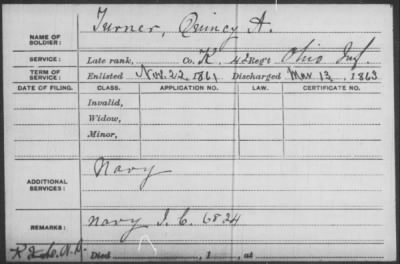 Turner, Quincy A.
NAME OF SOLDIER:
SERVICE: Late rank, Co. K, 42 Reg't Ohio Inf.
TERM OF SERVICE: Enlisted Nov. 22, 1861 Discharged Mar 13, 1863
DATE OF FILING. CLASS. APPLICATION NO. LAW. CERTIFICATE NO.
Invalid,
Widow,
Minor,
ADDITIONAL SERVICES: Navy
REMARKS: Navy I. C. 6824
Died , 1 , at